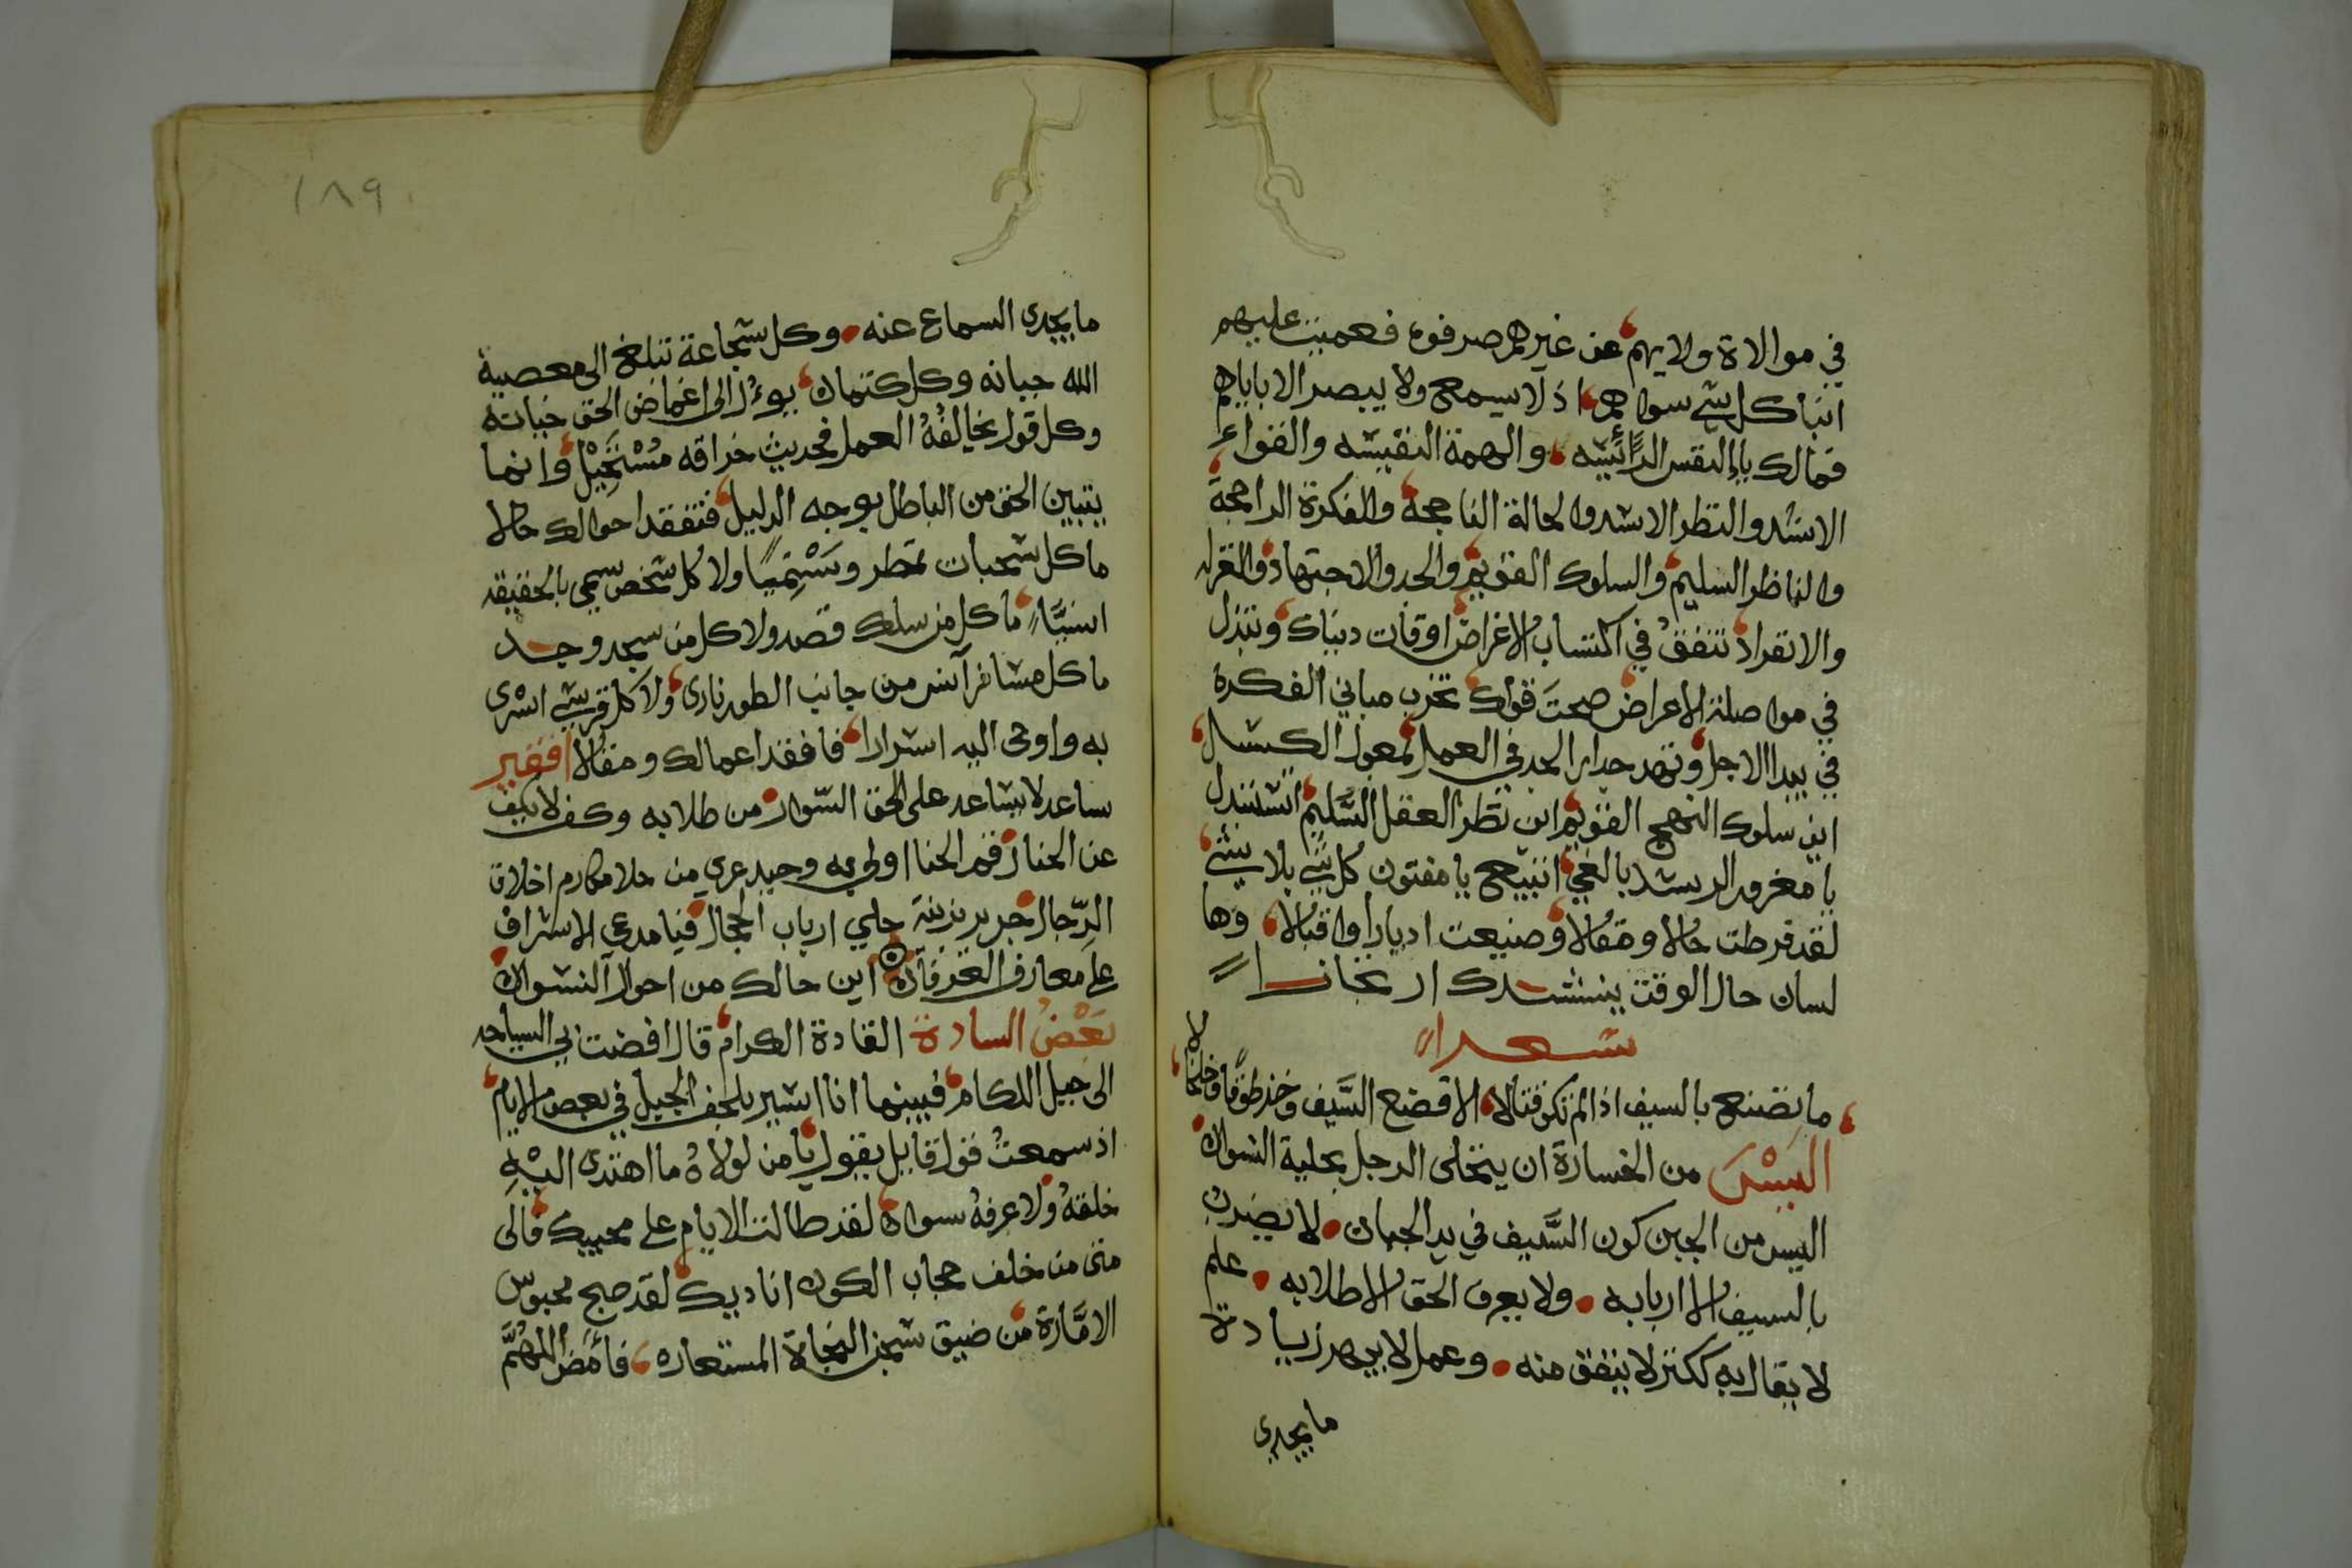 في موالاة ولايهم عن غيرهم صرفوه فعميت عليهم
انباكل شي سواهم اذ لا يسمع ولا يبصر الا باياهم
فمالك يا النفس الدائسه والهمة النفيسه والفواء
الاسد والنظر الاشد والحالة الناجحة والفكرة الراجحة
والناظر السليم والسلوك القويم والجد والاجتهاد والغزله
والانفراد تنفق في اكتساب الاغراض اوقات دنياك وتبذل
في مواصلة الاعراض صحت قواك تخرب مباني الفكرة
في بيدا الاجل وتهد جدار الجد في العمل بمعول الكسل
اين سلوك النهج القويم اين نظر العقل السليم اتستبدل
يا مغرور الرشد بالغي اتبيع يا مفتون كل شي بلا شي
لقد فرطت حالا ومقالا وضيعت ادبارا واقبالا وها
لسان حال الوقت ينشدك ارتجانا
شعرا
ما تصنع بالسيف اذا لم تكن قتالا الا فضع السيف وخذ طوقا وخلخالا
اليس من الخسارة ان يتحلى الرجل بحلية النسوان
اليس من الجبن كون السيف في يد الجبان لا يضرب
بالسيف الا اربابه ولا يعرف الحق الا طلابه علم
لا يقال به ككنز لا ينفق منه وعمل لا يبهر زيادة
ما يجدى
١٨٩
ما يجدى السماع عنه وكل شجاعة تبلغ الى معصية
الله جبانه وكل كتمان يوءل الى اغماض الحق خيانه
وكل قول يخالفه العمل فحديث خرافه مستحيل وانما
يتبين الحق من الباطل بوجه الدليل فتفقد احوالك حالا
ما كل سحبات تمطر وتستميا ولا كل شخص سمي بالحقيقه
انسيا ما كل من سلك قصد ولا كل من سجد وجد
ما كل مسافر آنس من جانب الطور نارى ولا كل قرشي اسرى
به واوحى اليه اسرارا فافقد اعمالك ومقالا افقير
ساعد لا يساعد على الحق السوار من طلابه وكف لا يكف
عن الخنا زفم الحنا اولى به وجيد عري من حلا مكارم اخلاق
الرجال جرير بزينة حلي ارباب الحجال فيا مدعي الاشراف
على معارف العرفان اين حالك من احوال النسوان
بعض السادة القادة الكرام قال افضت بي السياحه
الى جبل اللكام فبينما انا اسير بلحف الجبل في بعض الايام
اذ سمعت قول قايل يقول يا من لولاه ما اهتدى اليه
خلقه ولا عرفه سواه لقد طالت الايام على محبيك فالى
متى من خلف حجاب الكون اناديك لقد صج محبوس
الامارة من ضيق سجن الحياة المستعاره فأمض اللهم